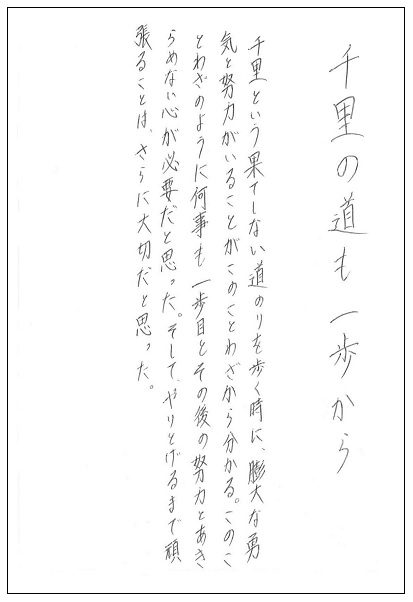 千里の道も一歩から
千里という果てしない道のりを歩く時に、膨大な勇
気と努力がいることがこのことわざから分かる。このこ
とわざのように何事も一歩目とその後の努力とあき
らめない心が必要だと思った。そして、やりとげるまで頑
張ることは、さらに大切だと思った。